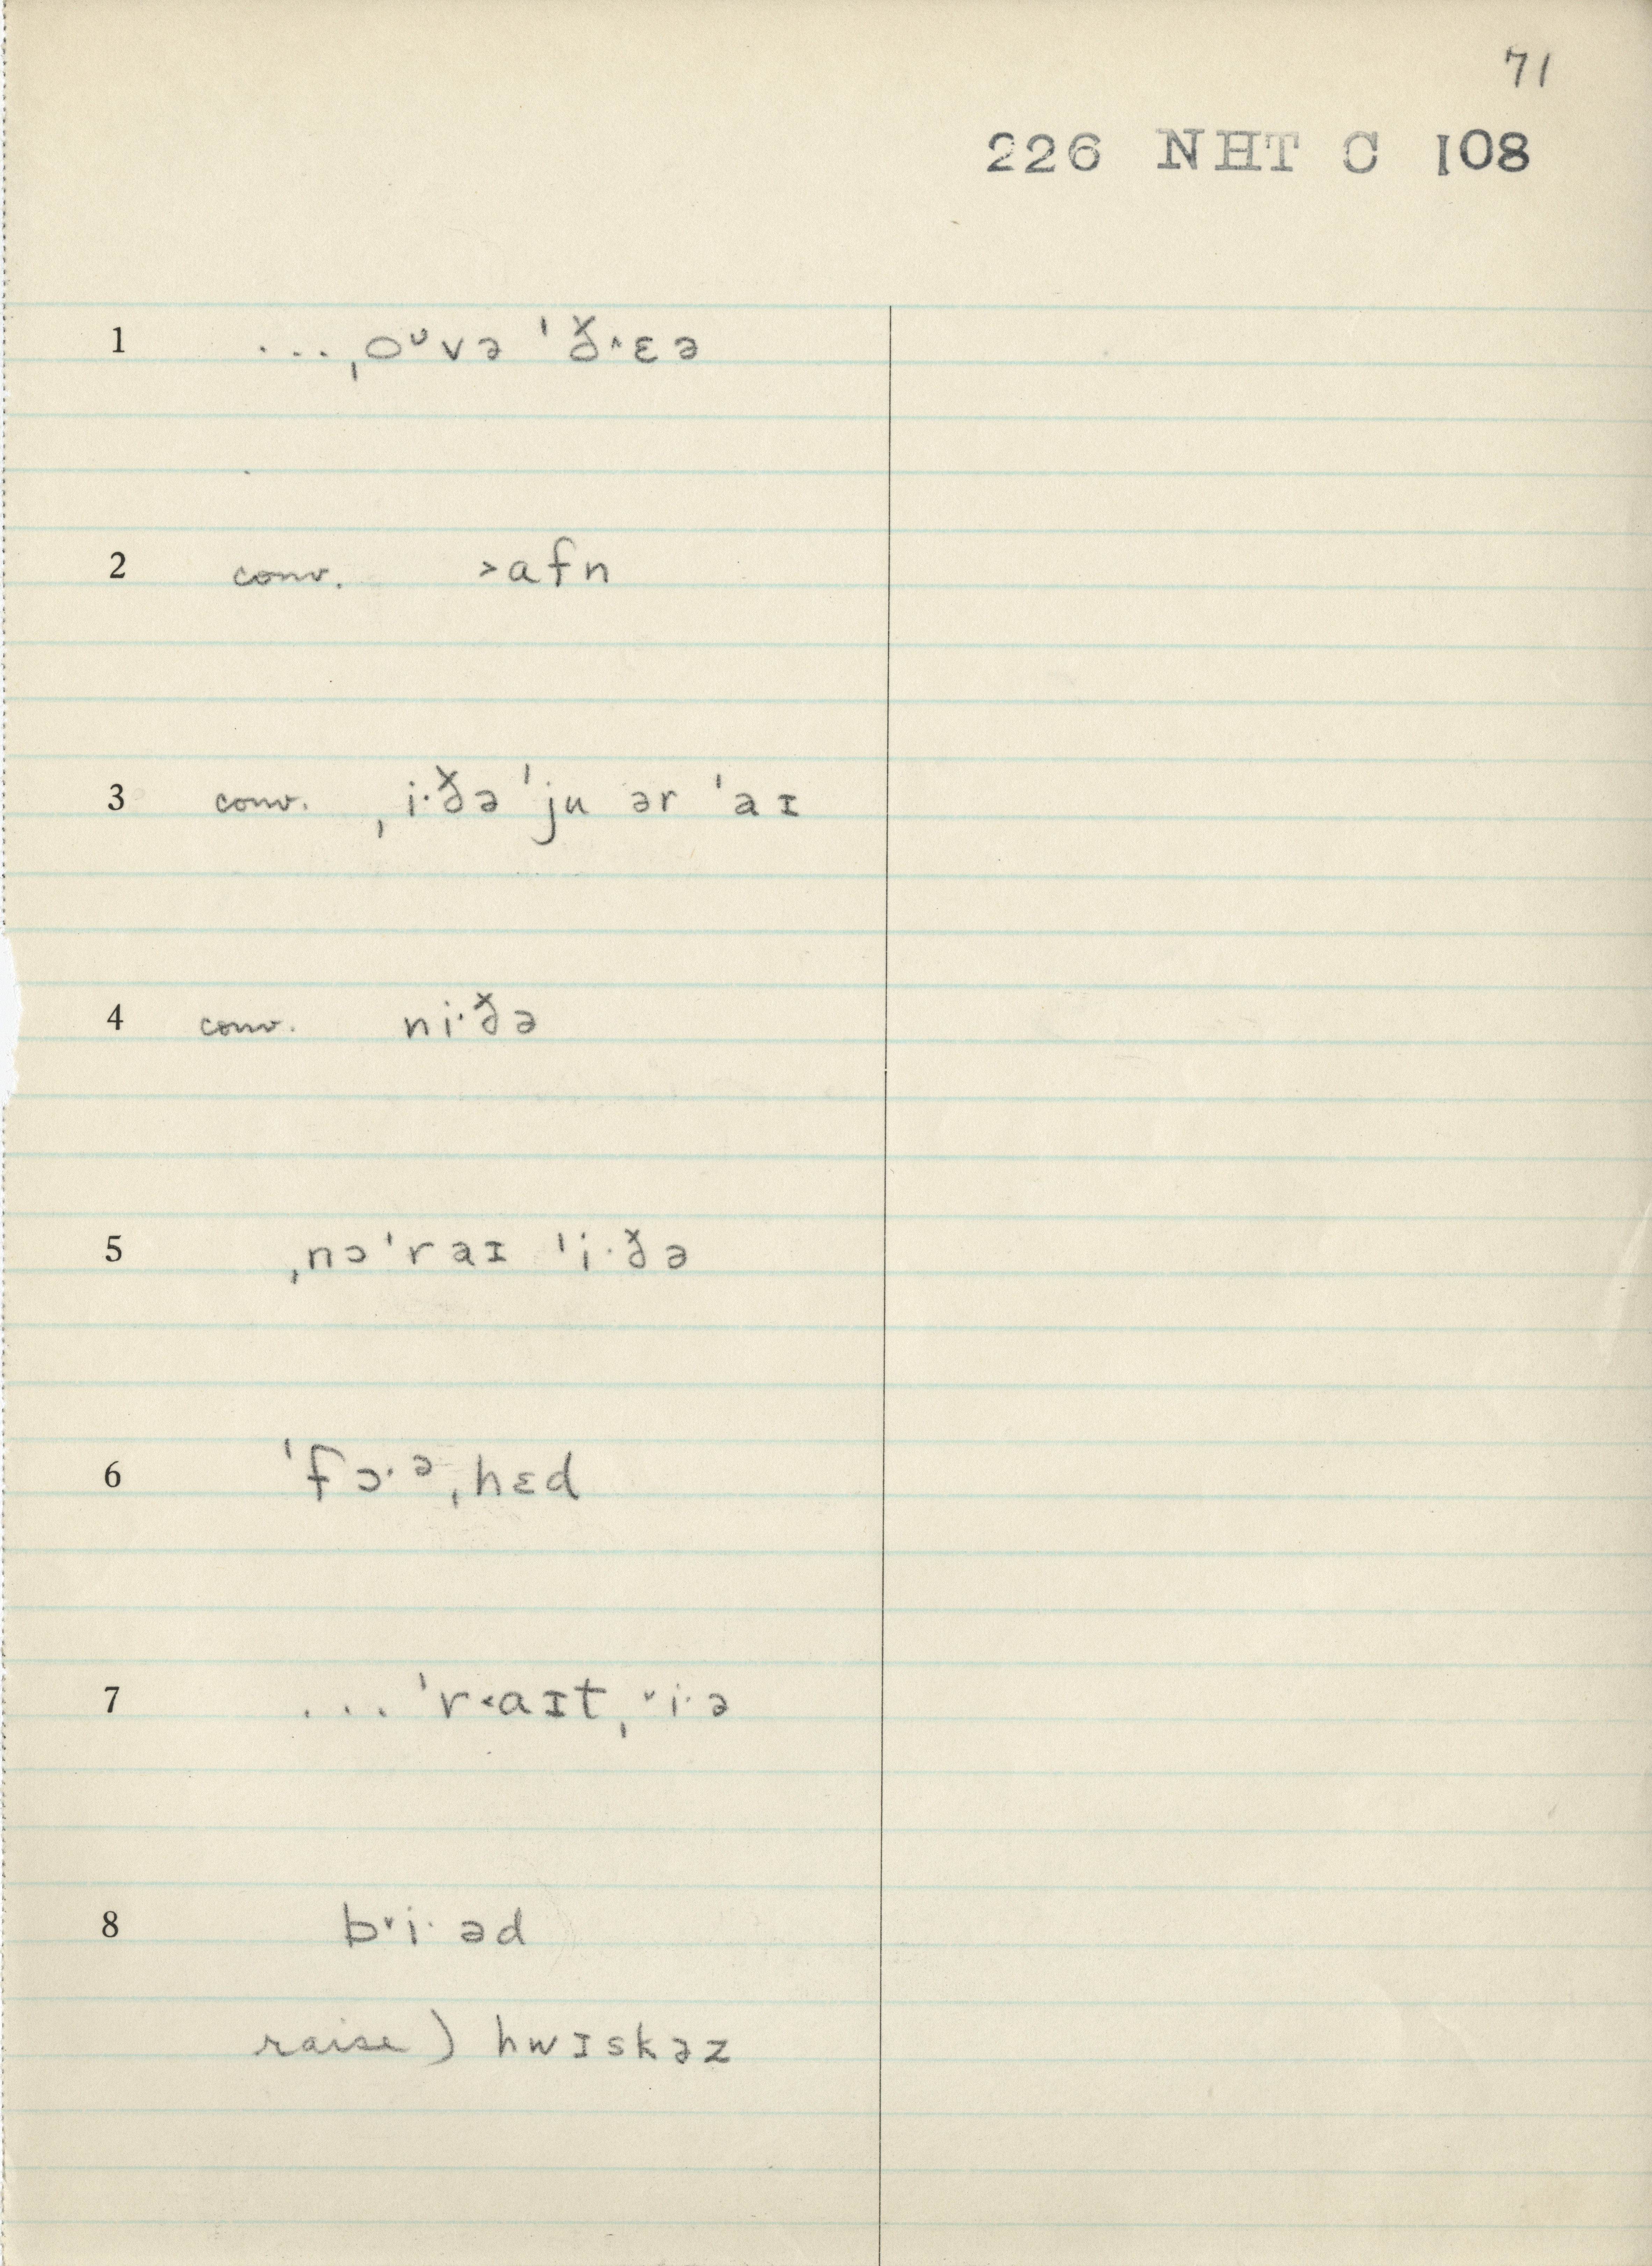 71
226 NHT C 108
1 ...ˌoᶷvə ˈð˄ɛə
2 conv. ˃afn
3 conv. ˌi·ðə ˈju ər ˈaɪ
4 conv. ni·ðə
5 ˌnɔˈraɪ ˈi·ðə
6 ˈfɔ·ᵊˌhɛd
7 ... ˈr˂aɪtˌ˅i·ə
8 b˅i·əd
raise) hwɪskəz